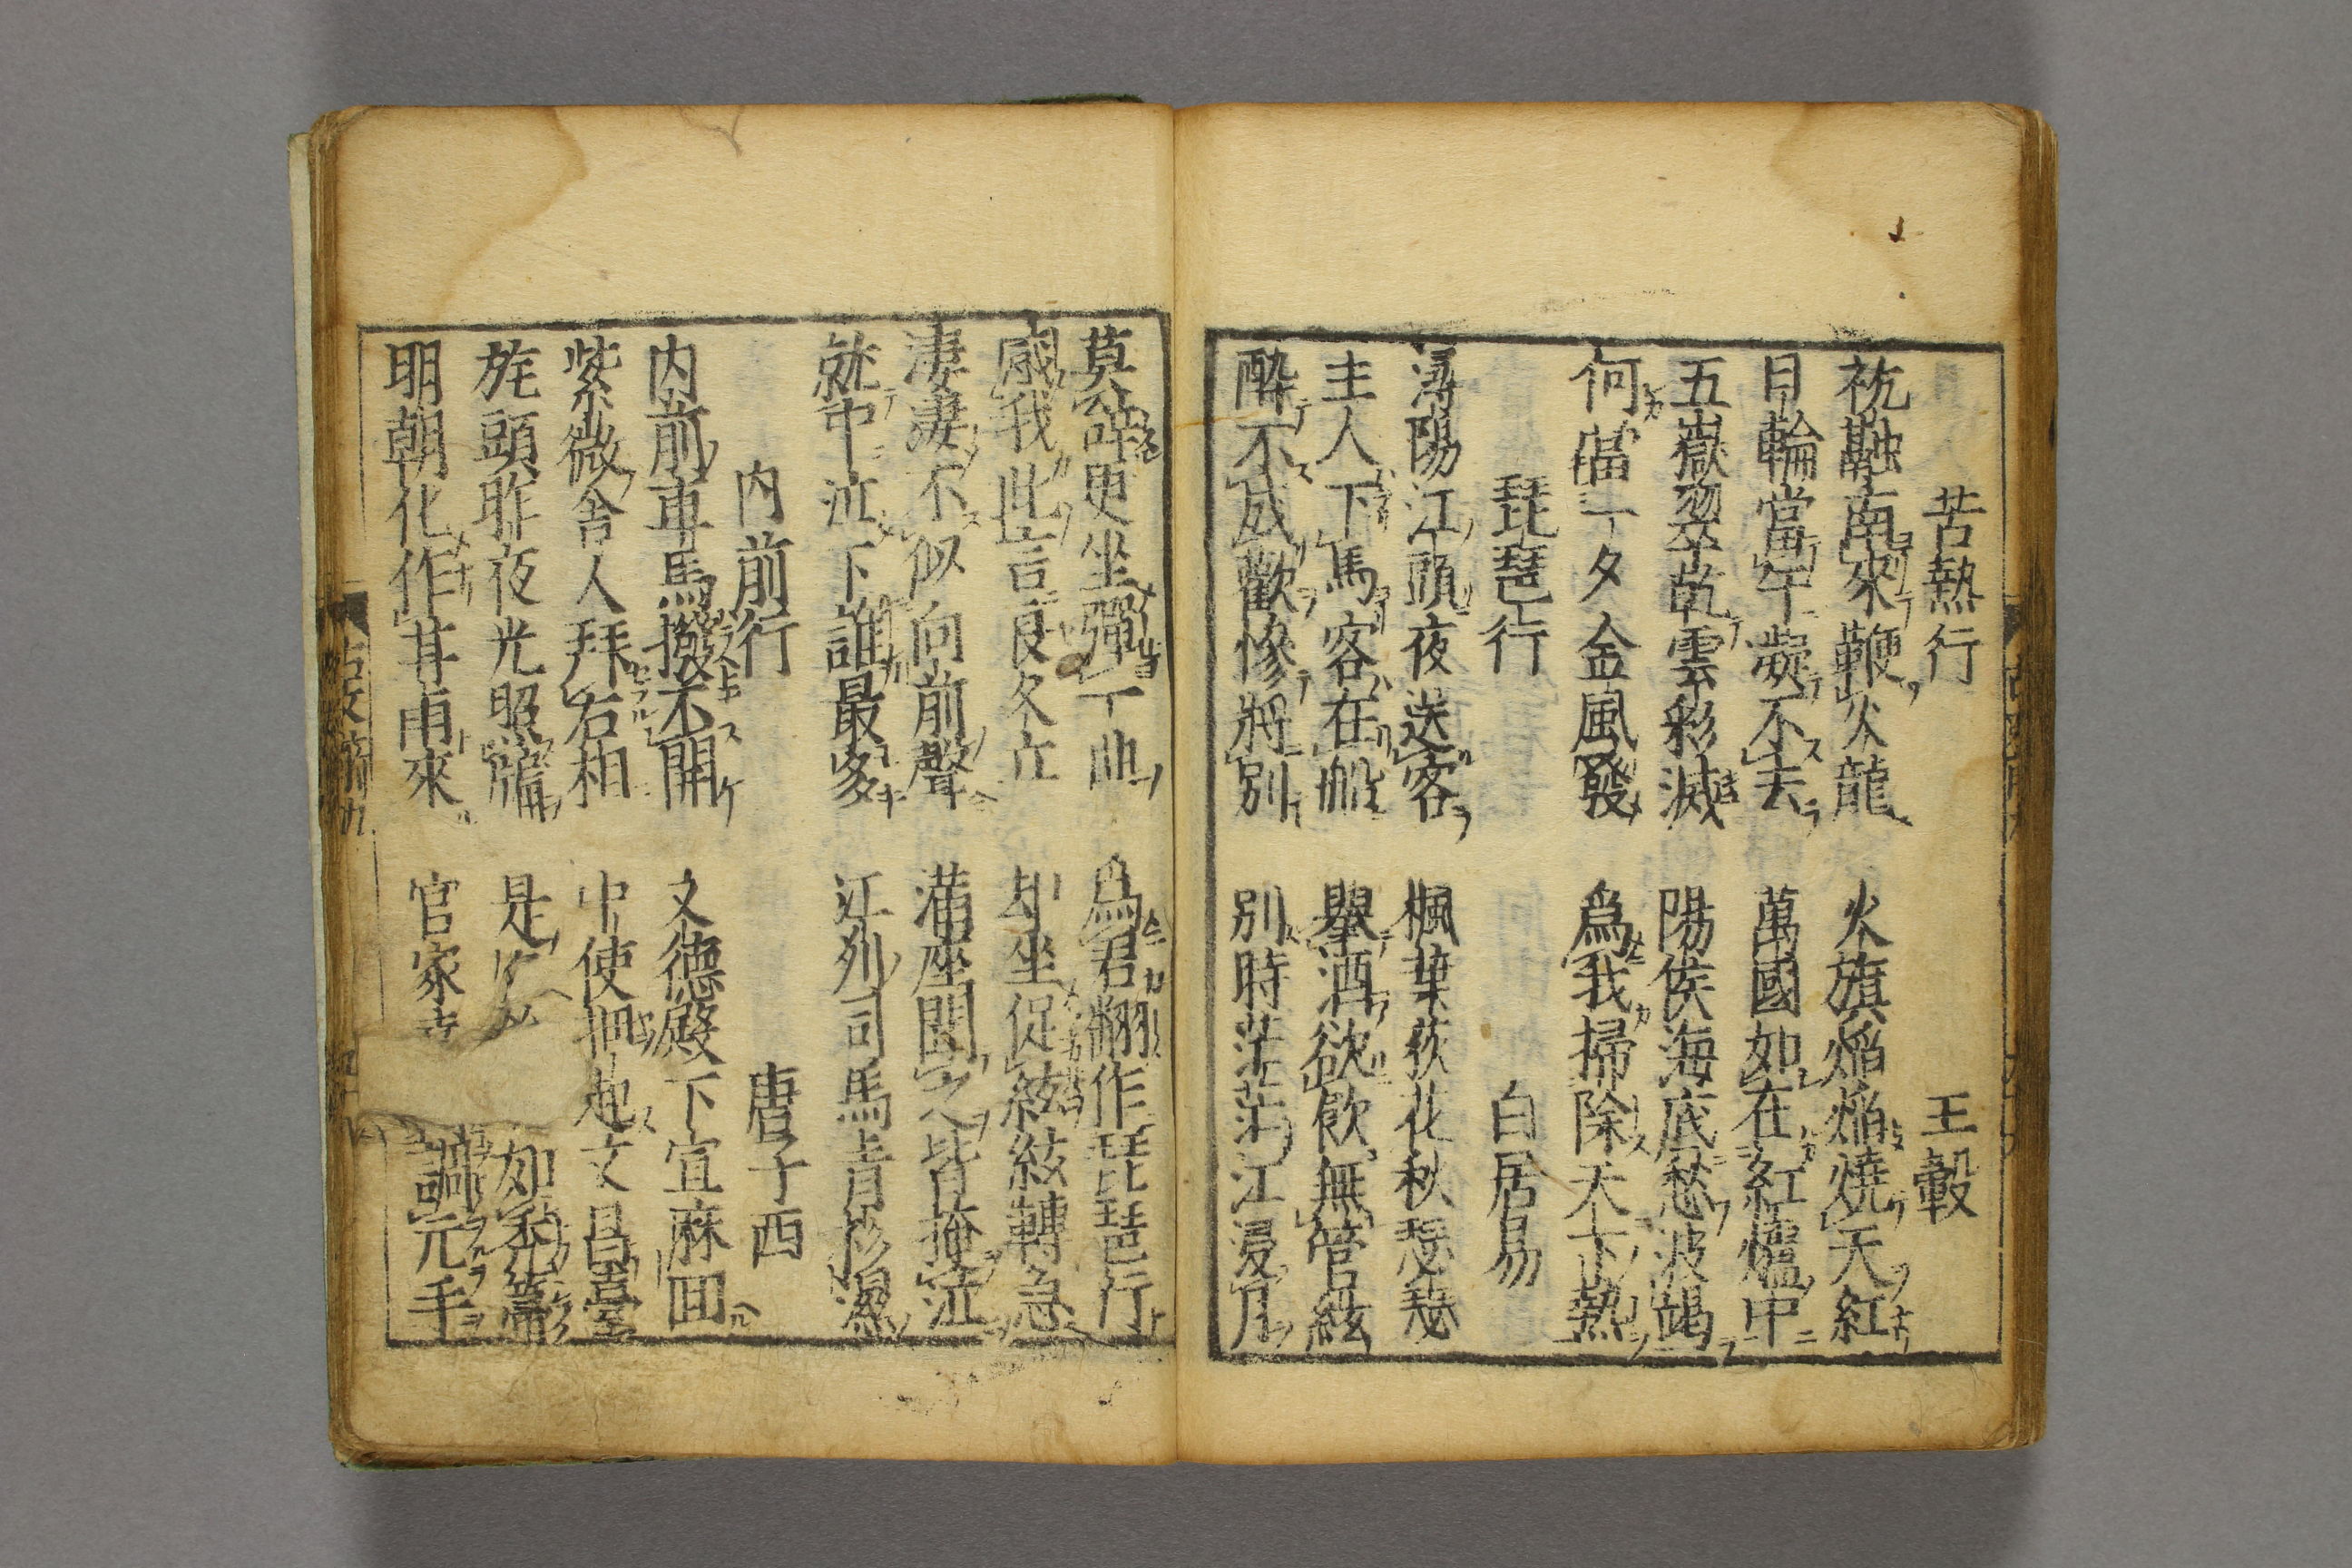 苦熱行　王轂
祝融南來鞭火龍　火旗焰焰燒天紅
日輪當午凝不去　萬國如在紅爐中
五嶽翠乾雲彩滅　陽侯海底愁波竭
何當一夕金風發　爲我掃除天下熱
琵琶行　白居易
潯陽江頭夜送客　楓葉荻花秋瑟瑟
主人下馬客在船　擧酒欲飮無管絃
醉不成歡慘將別　別時茫茫江浸月
莫辭更坐彈一曲　爲君翻作琵琶行
感我此言良久立　却坐促絃絃轉急
凄凄不似向前聲　滿座聞之皆掩泣
就中泣下誰最多　江州司馬靑衫濕
內前行　唐子西
內前車馬撥不開　文德殿下宣麻囘
紫微舍人拜右相　中使押赴文昌臺
旄頭昨夜光照牖　是　如禿箒
明朝化作甘雨來　官家　調元手